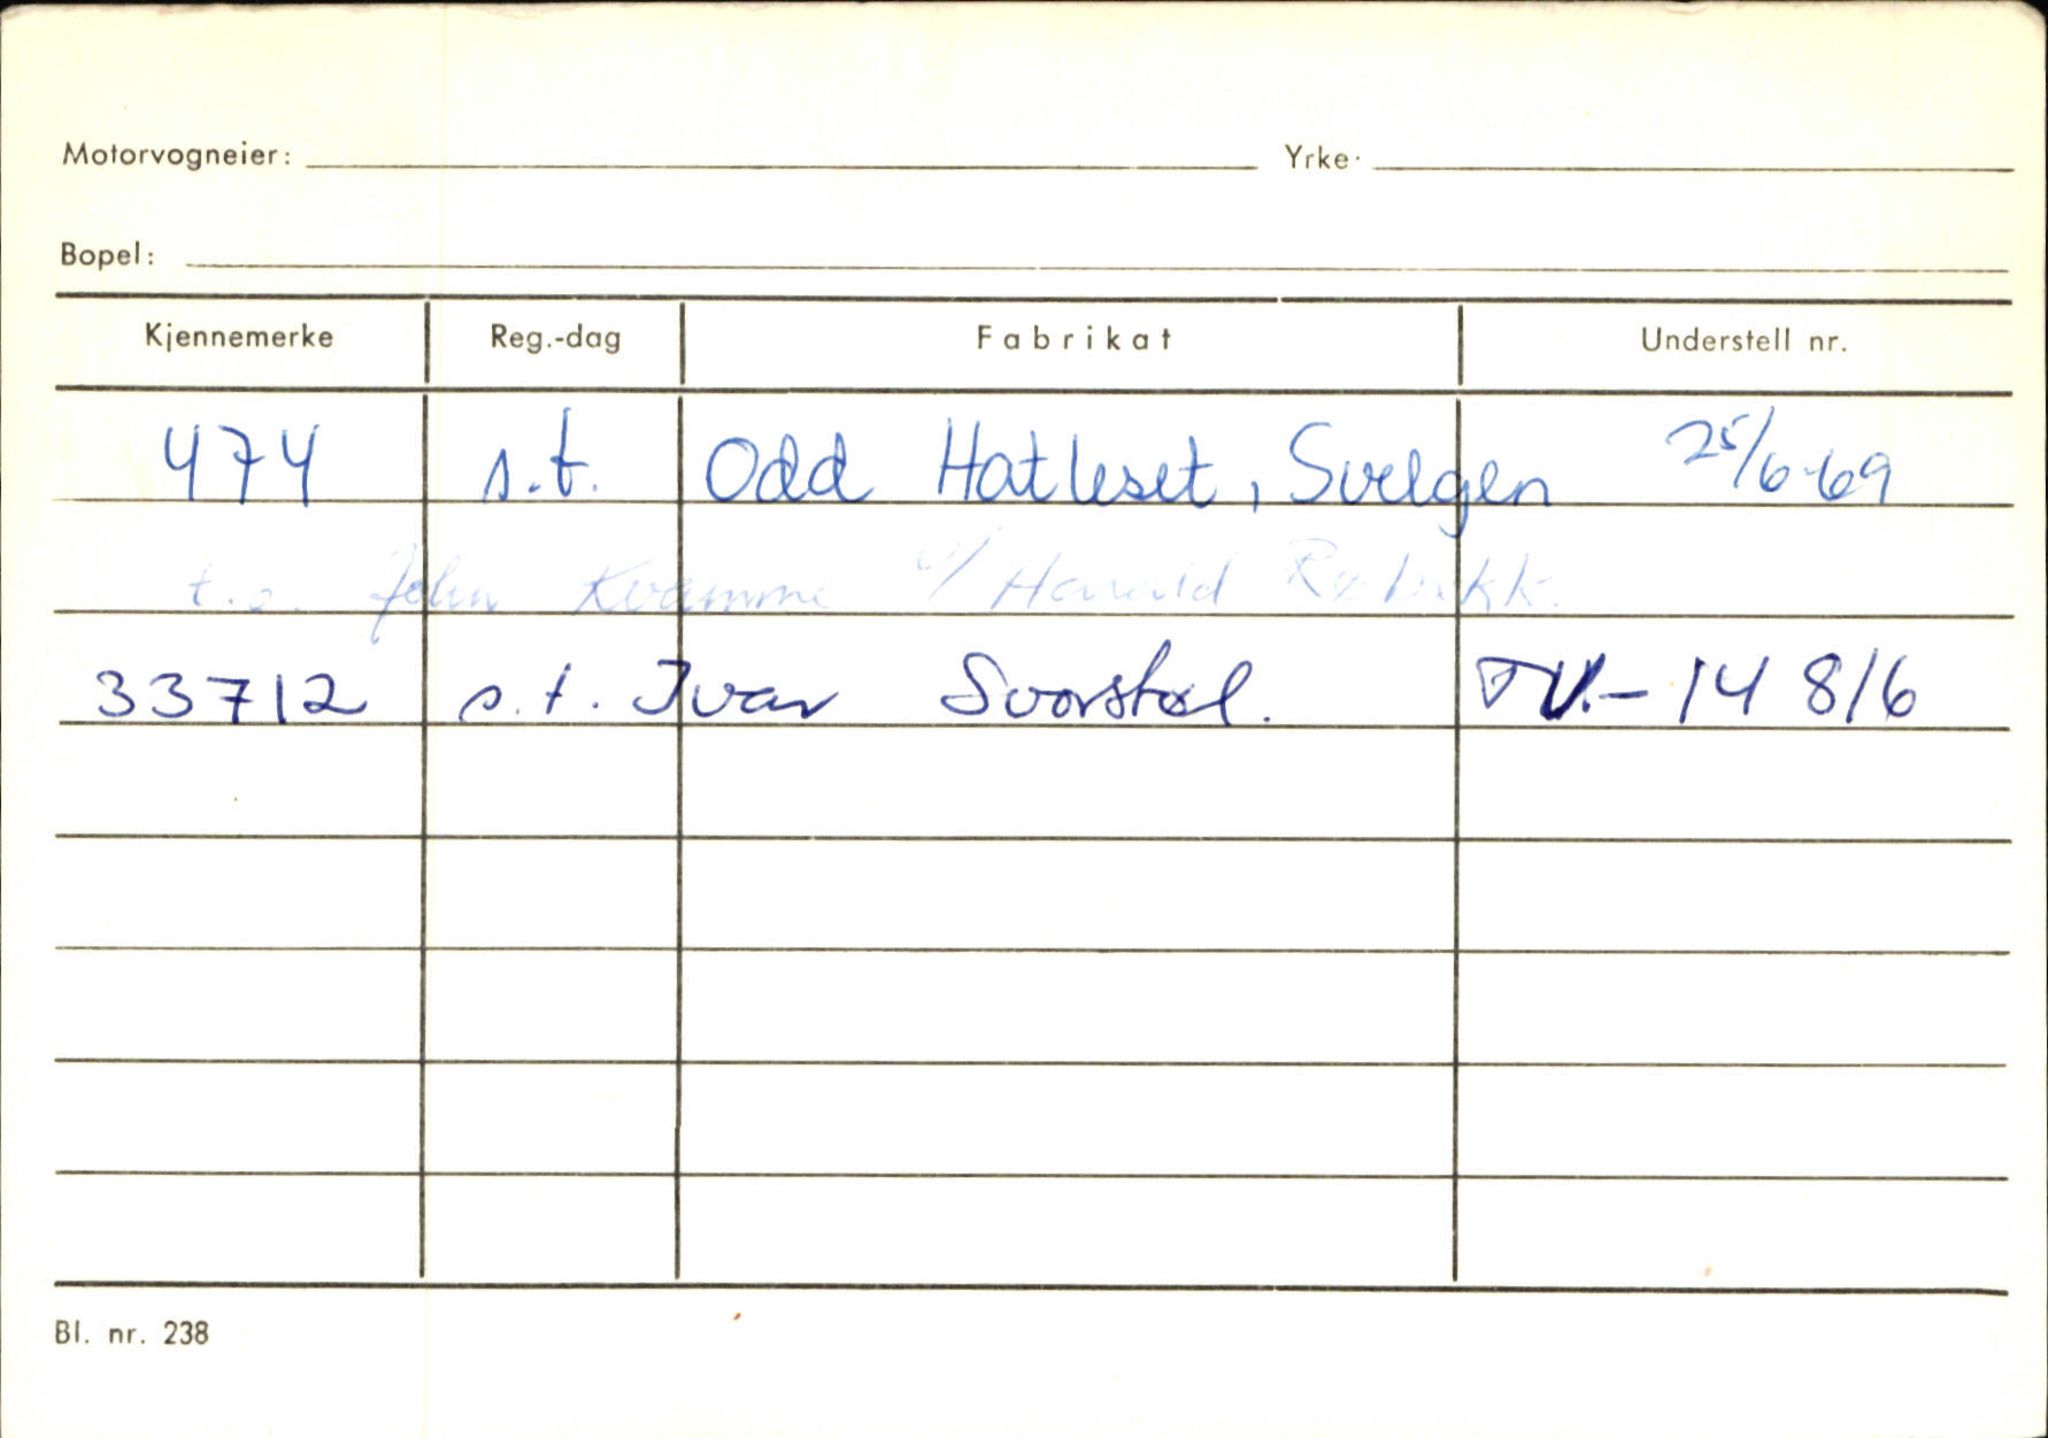 Motorvogneier: Yrke
Bopel:
Kjennemerke Reg.-dag Fabrikat Understell nr.
474 s.t. Odd Hatleset, Svelgen 25/6-69
John Kvamme v/ Harald
33712 s.t. Ivar Svorstøl. TU.- 14 816
Bl. nr. 238